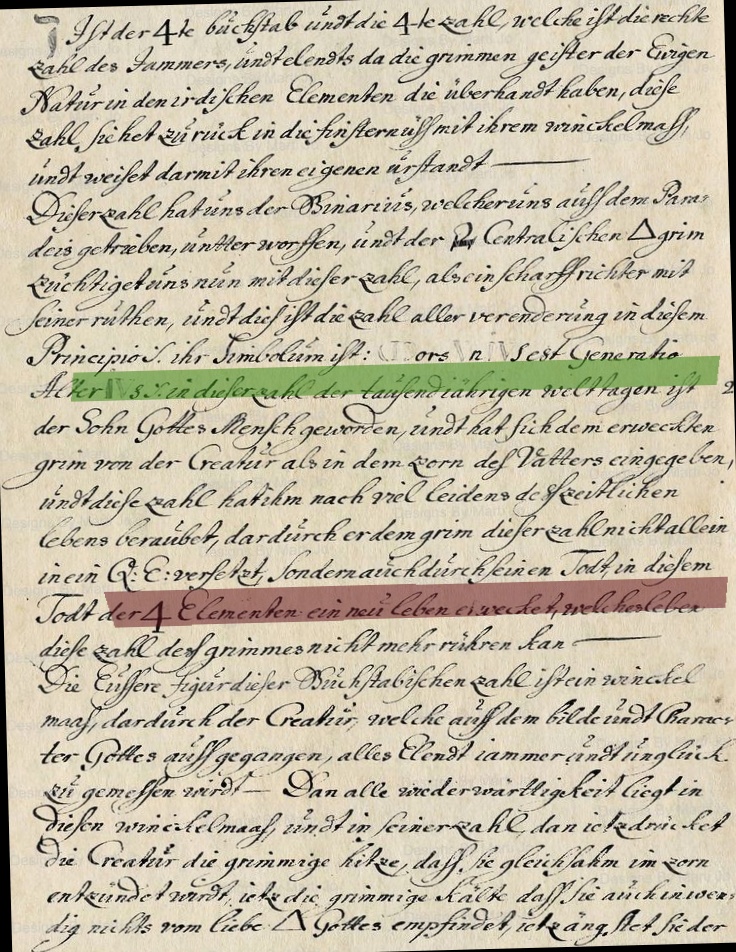 Ist der 4-te buchstab undt die 4-te zahl, welche ist die rechte
zahl des Jammers, undt elendts da die grimmen geister der Ewigen
Natur in den irdischen Elementen die überhandt haben, diese
zahl siehet zurück in die finsternüß mit ihrem winckelmaß,
undt weiset darmit ihren eigenen urstandt —
Dieser zahl hat uns der Binarius, welcher uns auß dem Para-
deis getrieben, untter worffen, undt der Centralischen △ grim
züchtiget uns nun mit dieser zahl, als ein scharffrichter mit
seiner ruthen, undt dies ist die zahl aller verenderung in diesem
Principio S. ihr Simbolum ist: ors est Generatio
in dieser zahl der tausendjährigen welttagen ist 2
der Sohn Gottes Mensch geworden, undt hat sich dem erweckten
grim von der Creatur als in dem zorn deß Vatters eingegeben,
undt diese zahl hat ihm nach viel leidens deß zeitlichen
lebens beraubet, dardurch er dem grim dieser zahl nicht allein
in ein Q: E: versetzt, sondern auch durch seinen Todt, in diesem
Todt der 4 Elementen ein neu leben erwecket, welches leben
diese zahl deß grimmes nicht mehr rühren kan —
Die Eussere figur dieser Buchstabischen zahl ist ein winckel
maaß, dardurch der Creatur, welche auß dem bilde undt Charac-
ter Gottes aussgegangen, alles Elendt iammer undt unglück
zu gemessen wirdt — Dan alle wiederwärttigkeit liegt in
diesen winckelmaaß, undt in seiner zahl, dan ietz drücket
die Creatur die grimmige hitze, daß sie gleichsahm im zorn
entzündet wirdt, ietz die grimmige Kälte daß sie auch inwen-
dig nichts vom liebe △ Gottes empfindet, ietz ängstet sie der